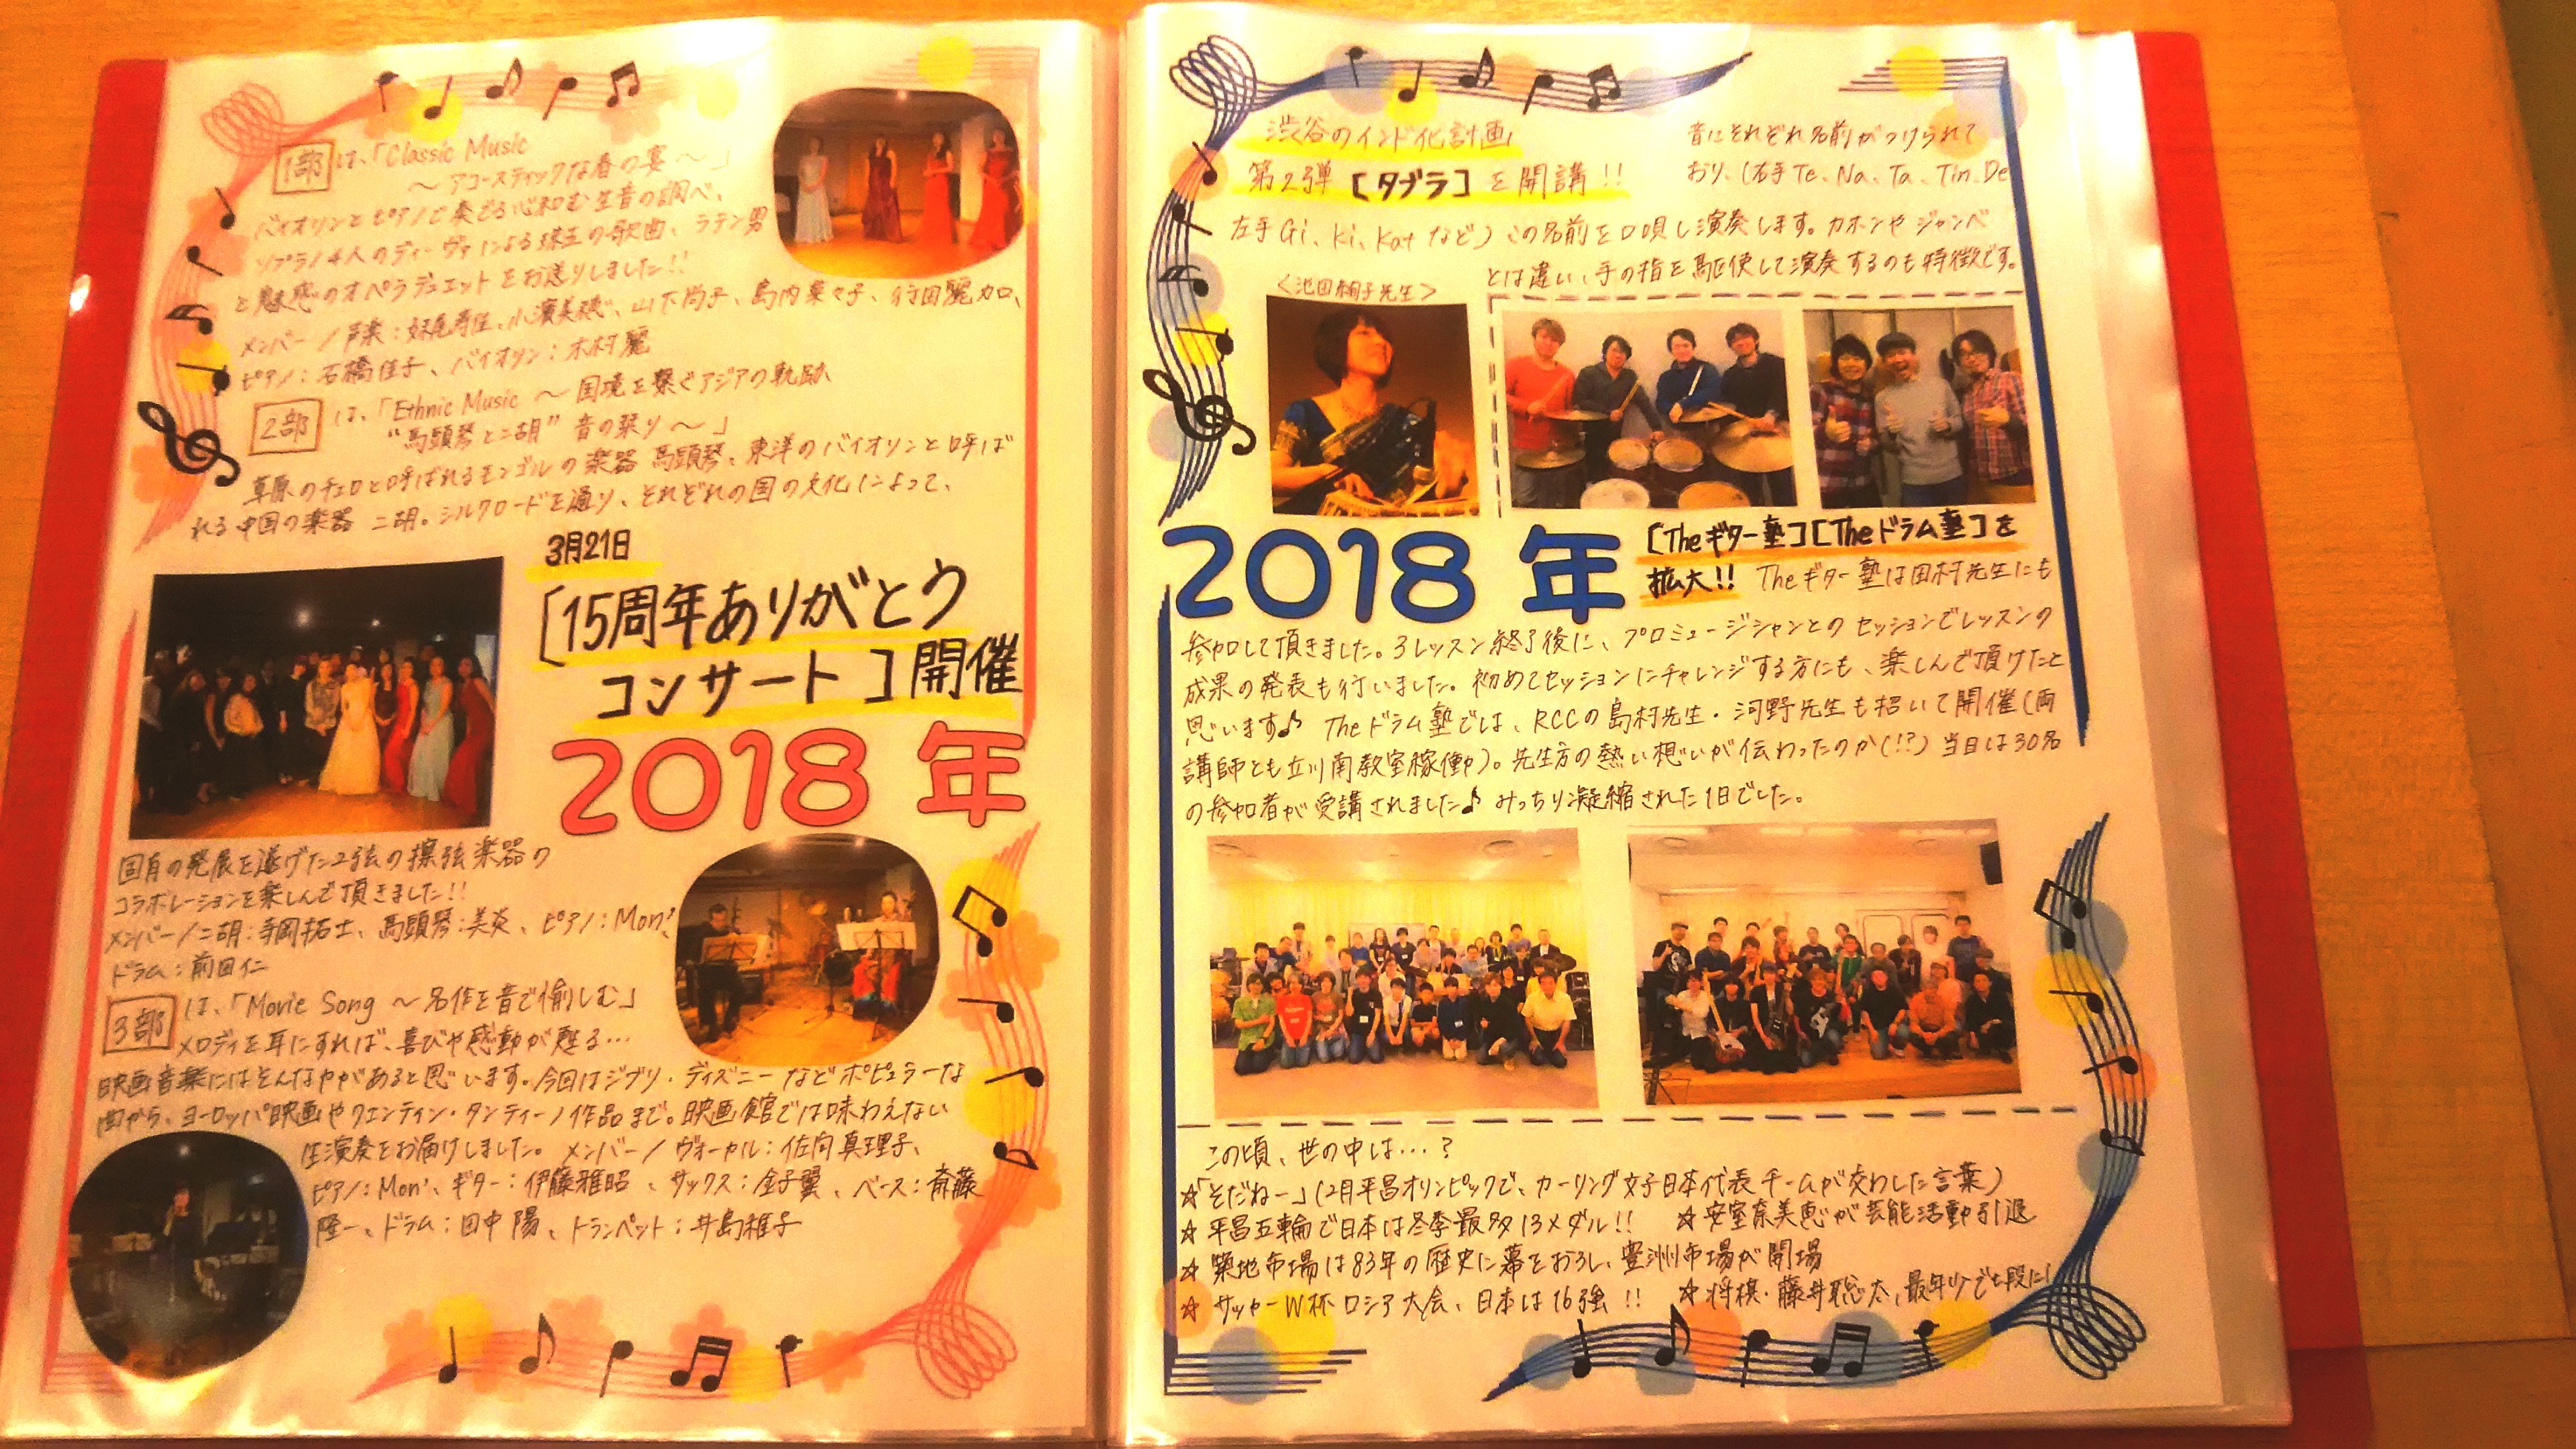 1部 は、「Classic Music
～アコースティックな春の宴～」
バイオリンとピアノで奏でる心和む生音の調べ、
ソプラノ4人のディーヴァによる珠玉の歌曲、ラテン男
と魅惑のオペラデュエットをお送りしました!!
メンバー/声楽: 小濱美穂、山下尚子、島内菜々子、行田麗加、
ピアノ:石橋佳子、バイオリン:木村麗
2部 は、「Ethnic Music ～国境を繋ぐアジアの軌跡、
"馬頭琴と二胡" 音の栞り～」
草原のチェロと呼ばれるモンゴルの楽器 馬頭琴、東洋のバイオリンと呼ば
れる中国の楽器 二胡。シルクロードを通り、それぞれの国の文化によって、
3月21日
[15周年ありがとう
コンサート]開催
2018年
固有の発展を遂げた2弦の擦弦楽器の
コラボレーションを楽しんで頂きました!!
メンバー/二胡:寺岡拓士、馬頭琴:美炎、ピアノ:Mon'、
ドラム:前田仁
3部 は、「Movie Song ～名作を音で愉しむ」
メロディを耳にすれば、喜びや感動が甦る…
映画音楽にはそんな力があると思います。今回はジブリ・ディズニーなどポピュラーな
曲から、ヨーロッパ映画やクエンティン・タンティーノ作品まで。映画館では味わえない
生演奏をお届けしました。メンバー/ヴォーカル:佐向真理子、
ピアノ:Mon'、ギター:伊藤雅昭、サックス:金子翼、ベース:斎藤
隆一、ドラム:田中陽、トランペット:井島稚子
渋谷のインド化計画
第2弾 [タブラ] を開講!!
音にそれぞれ名前がつけられて
おり、(右手Te、Na、Ta、Tin、De
左手Gi、Ki、Katなど)この名前を口唄し演奏します。カホンやジャンベ
とは違い、手の指を駆使して演奏するのも特徴です。
<池田絢子先生>
2018年
[Theギター塾][Theドラム塾]を
拡大!! Theギター塾は田村先生にも
参加して頂きました。3レッスン終了後に、プロミュージシャンとのセッションでレッスンの
成果の発表も行いました。初めてセッションにチャレンジする方にも、楽しんで頂けたと
思います♪ Theドラム塾では、RCCの島村先生・河野先生も招いて開催(両
講師とも立川南教室稼働)。先生方の熱い想いが伝わったのか(!?)当日は30名
の参加者が受講されました♪ みっちり凝縮された1日でした。
この頃、世の中は…?
☆「そだねー」(2月平昌オリンピックで、カーリング女子日本代表チームが交わした言葉)
☆平昌五輪で日本は冬季最多13メダル!! ☆安室奈美恵が芸能活動引退
☆築地市場は83年の歴史に幕をおろし、豊洲市場が開場
☆サッカーW杯ロシア大会、日本は16強!! ☆将棋・藤井聡太、最年少で七段に!